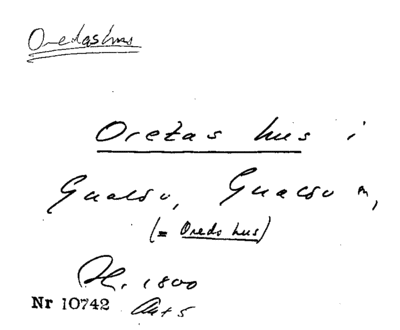 Oredashus
Oretas hus i
Gualöv, Gualöv sn,
(= Oreds hus)
1800
Nr 10742